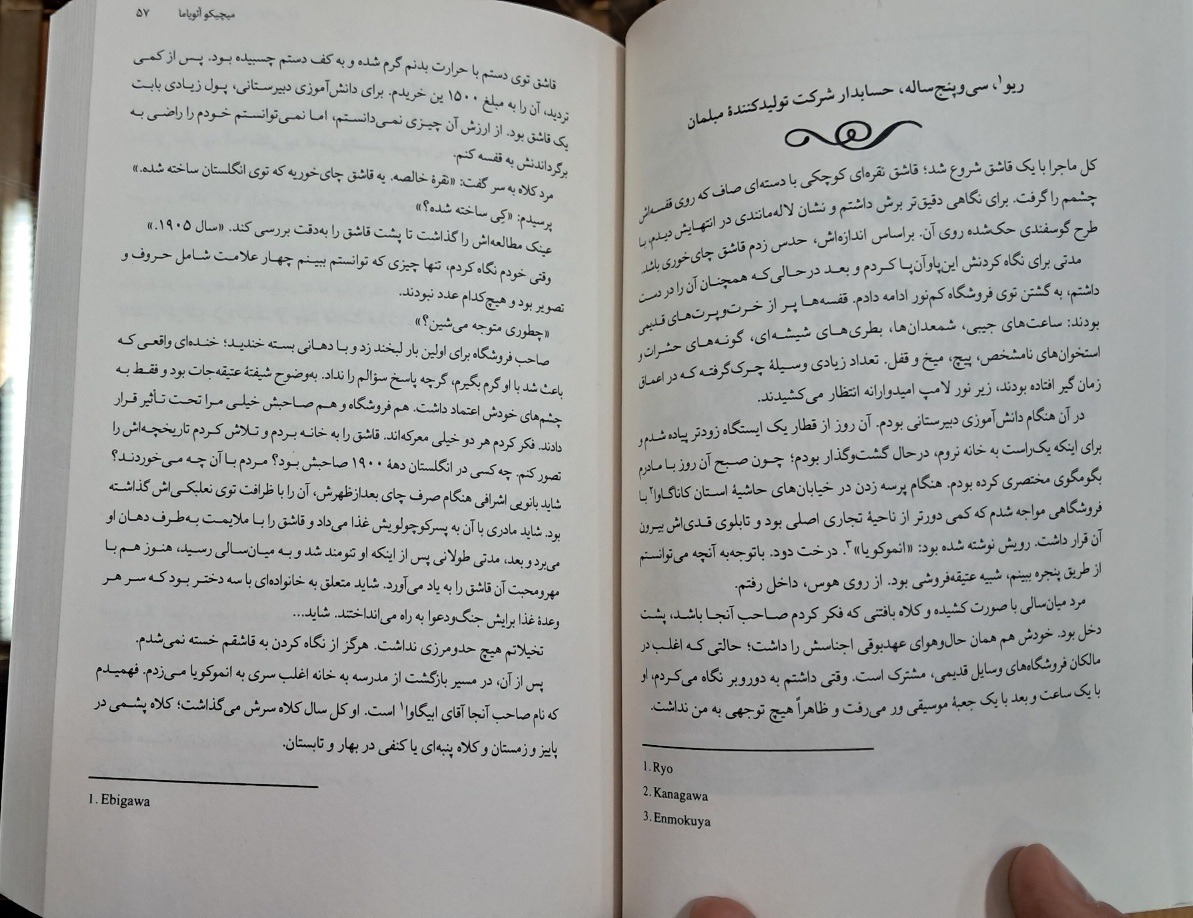 ریو۱، سی‌وپنج‌ساله، حسابدار شرکت تولیدکنندهٔ مبلمان
کل ماجرا با یک قاشق شروع شد؛ قاشق نقره‌ای کوچکی با دسته‌ای صاف که روی قفسه‌اش
چشمم را گرفت. برای نگاهی دقیق‌تر برش داشتم و نشان لاله‌مانندی در انتهایش دیدم، با
طرح گوسفندی حک‌شده روی آن. براساس اندازه‌اش، حدس زدم قاشق چای‌خوری باشد.
مدتی برای نگاه کردنش این‌پاوآن‌پا کردم و بعد درحالی‌که همچنان آن را در دست
داشتم، به گشتن توی فروشگاه کم‌نور ادامه دادم. قفسه‌ها پر از خرت‌وپرت‌های قدیمی
بودند: ساعت‌های جیبی، شمعدان‌ها، بطری‌های شیشه‌ای، گونه‌های حشرات و
استخوان‌های نامشخص، پیچ، میخ و قفل. تعداد زیادی وسیلهٔ چرک‌گرفته که در اعماق
زمان گیر افتاده بودند، زیر نور لامپ امیدوارانه انتظار می‌کشیدند.
در آن هنگام دانش‌آموزی دبیرستانی بودم. آن روز از قطار یک ایستگاه زودتر پیاده شدم و
برای اینکه یک‌راست به خانه نروم، درحال گشت‌وگذار بودم؛ چون صبح آن روز با مادرم
بگومگوی مختصری کرده بودم. هنگام پرسه زدن در خیابان‌های حاشیهٔ استان کاناگاوا۲ با
فروشگاهی مواجه شدم که کمی دورتر از ناحیهٔ تجاری اصلی بود و تابلوی قدی‌اش بیرون
آن قرار داشت. رویش نوشته شده بود: «انموکویا»۳. درخت دود. باتوجه‌به آنچه می‌توانستم
از طریق پنجره ببینم، شبیه عتیقه‌فروشی بود. از روی هوس، داخل رفتم.
مرد میان‌سالی با صورت کشیده و کلاه بافتنی که فکر کردم صاحب آنجا باشد، پشت
دخل بود. خودش هم همان حال‌وهوای عهدبوقی اجناسش را داشت؛ حالتی که اغلب در
مالکان فروشگاه‌های وسایل قدیمی، مشترک است. وقتی داشتم به دوروبر نگاه می‌کردم، او
با یک ساعت و بعد با یک جعبهٔ موسیقی ور می‌رفت و ظاهراً هیچ توجهی به من نداشت.
1. Ryo
2. Kanagawa
3. Enmokuya
میچیکو آئویاما ۵۷
قاشق توی دستم با حرارت بدنم گرم شده و به کف دستم چسبیده بود. پس از کمی
تردید، آن را به مبلغ ۱۵۰۰ ین خریدم. برای دانش‌آموزی دبیرستانی، پول زیادی بابت
یک قاشق بود. از ارزش آن چیزی نمی‌دانستم، اما نمی‌توانستم خودم را راضی به
برگرداندنش به قفسه کنم.
مرد کلاه به سر گفت: «نقرهٔ خالصه. یه قاشق چای‌خوریه که توی انگلستان ساخته شده.»
پرسیدم: «کِی ساخته شده؟»
عینک مطالعه‌اش را گذاشت تا پشت قاشق را به‌دقت بررسی کند. «سال ۱۹۰۵.»
وقتی خودم نگاه کردم، تنها چیزی که توانستم ببینم چهار علامت شامل حروف و
تصویر بود و هیچ‌کدام عدد نبودند.
«چطوری متوجه می‌شین؟»
صاحب فروشگاه برای اولین بار لبخند زد و با دهانی بسته خندید؛ خنده‌ای واقعی که
باعث شد با او گرم بگیرم، گرچه پاسخ سؤالم را نداد. به‌وضوح شیفتهٔ عتیقه‌جات بود و فقط به
چشم‌های خودش اعتماد داشت. هم فروشگاه و هم صاحبش خیلی مرا تحت تأثیر قرار
دادند. فکر کردم هر دو خیلی معرکه‌اند. قاشق را به خانه بردم و تلاش کردم تاریخچه‌اش را
تصور کنم. چه کسی در انگلستان دههٔ ۱۹۰۰ صاحبش بود؟ مردم با آن چه می‌خوردند؟
شاید بانویی اشرافی هنگام صرف چای بعدازظهرش، آن را با ظرافت توی نعلبکی‌اش گذاشته
بود. شاید مادری با آن به پسرکوچولویش غذا می‌داد و قاشق را با ملایمت به‌طرف دهان او
می‌برد و بعد، مدتی طولانی پس از اینکه او تنومند شد و به میان‌سالی رسید، هنوز هم با
مهرومحبت آن قاشق را به یاد می‌آورد. شاید متعلق به خانواده‌ای با سه دختر بود که سر هر
وعدهٔ غذا برایش جنگ‌ودعوا به راه می‌انداختند. شاید...
تخیلاتم هیچ حدومرزی نداشت. هرگز از نگاه کردن به قاشقم خسته نمی‌شدم.
پس از آن، در مسیر بازگشت از مدرسه به خانه اغلب سری به انموکویا می‌زدم. فهمیدم
که نام صاحب آنجا آقای ابیگاوا۱ است. او کل سال کلاه سرش می‌گذاشت؛ کلاه پشمی در
پاییز و زمستان و کلاه پنبه‌ای یا کنفی در بهار و تابستان.
1. Ebigawa